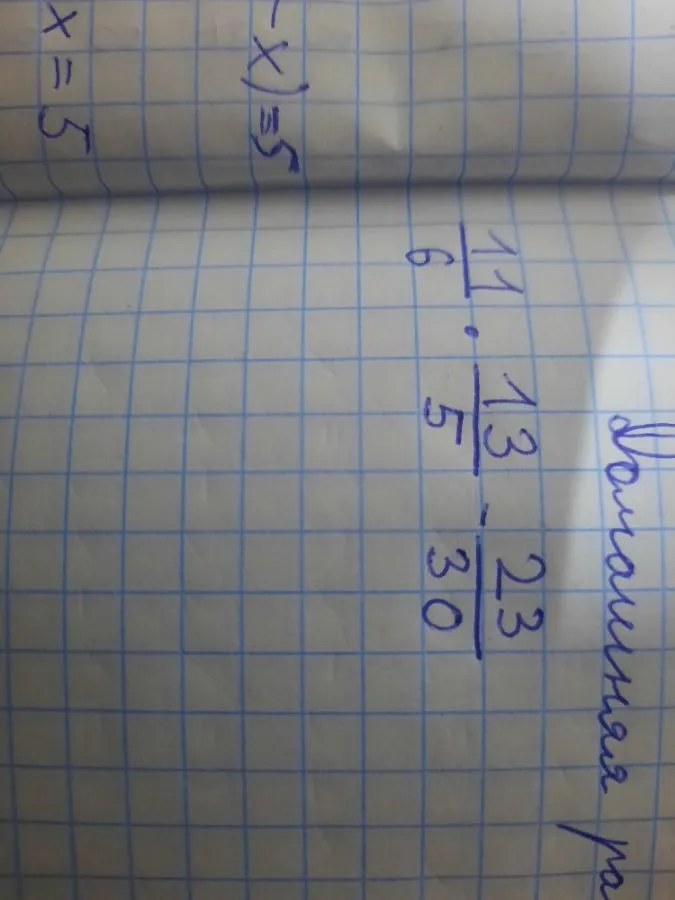 - x) = 5
x = 5
Домашняя ра
11/6 · 13/5 - 23/30